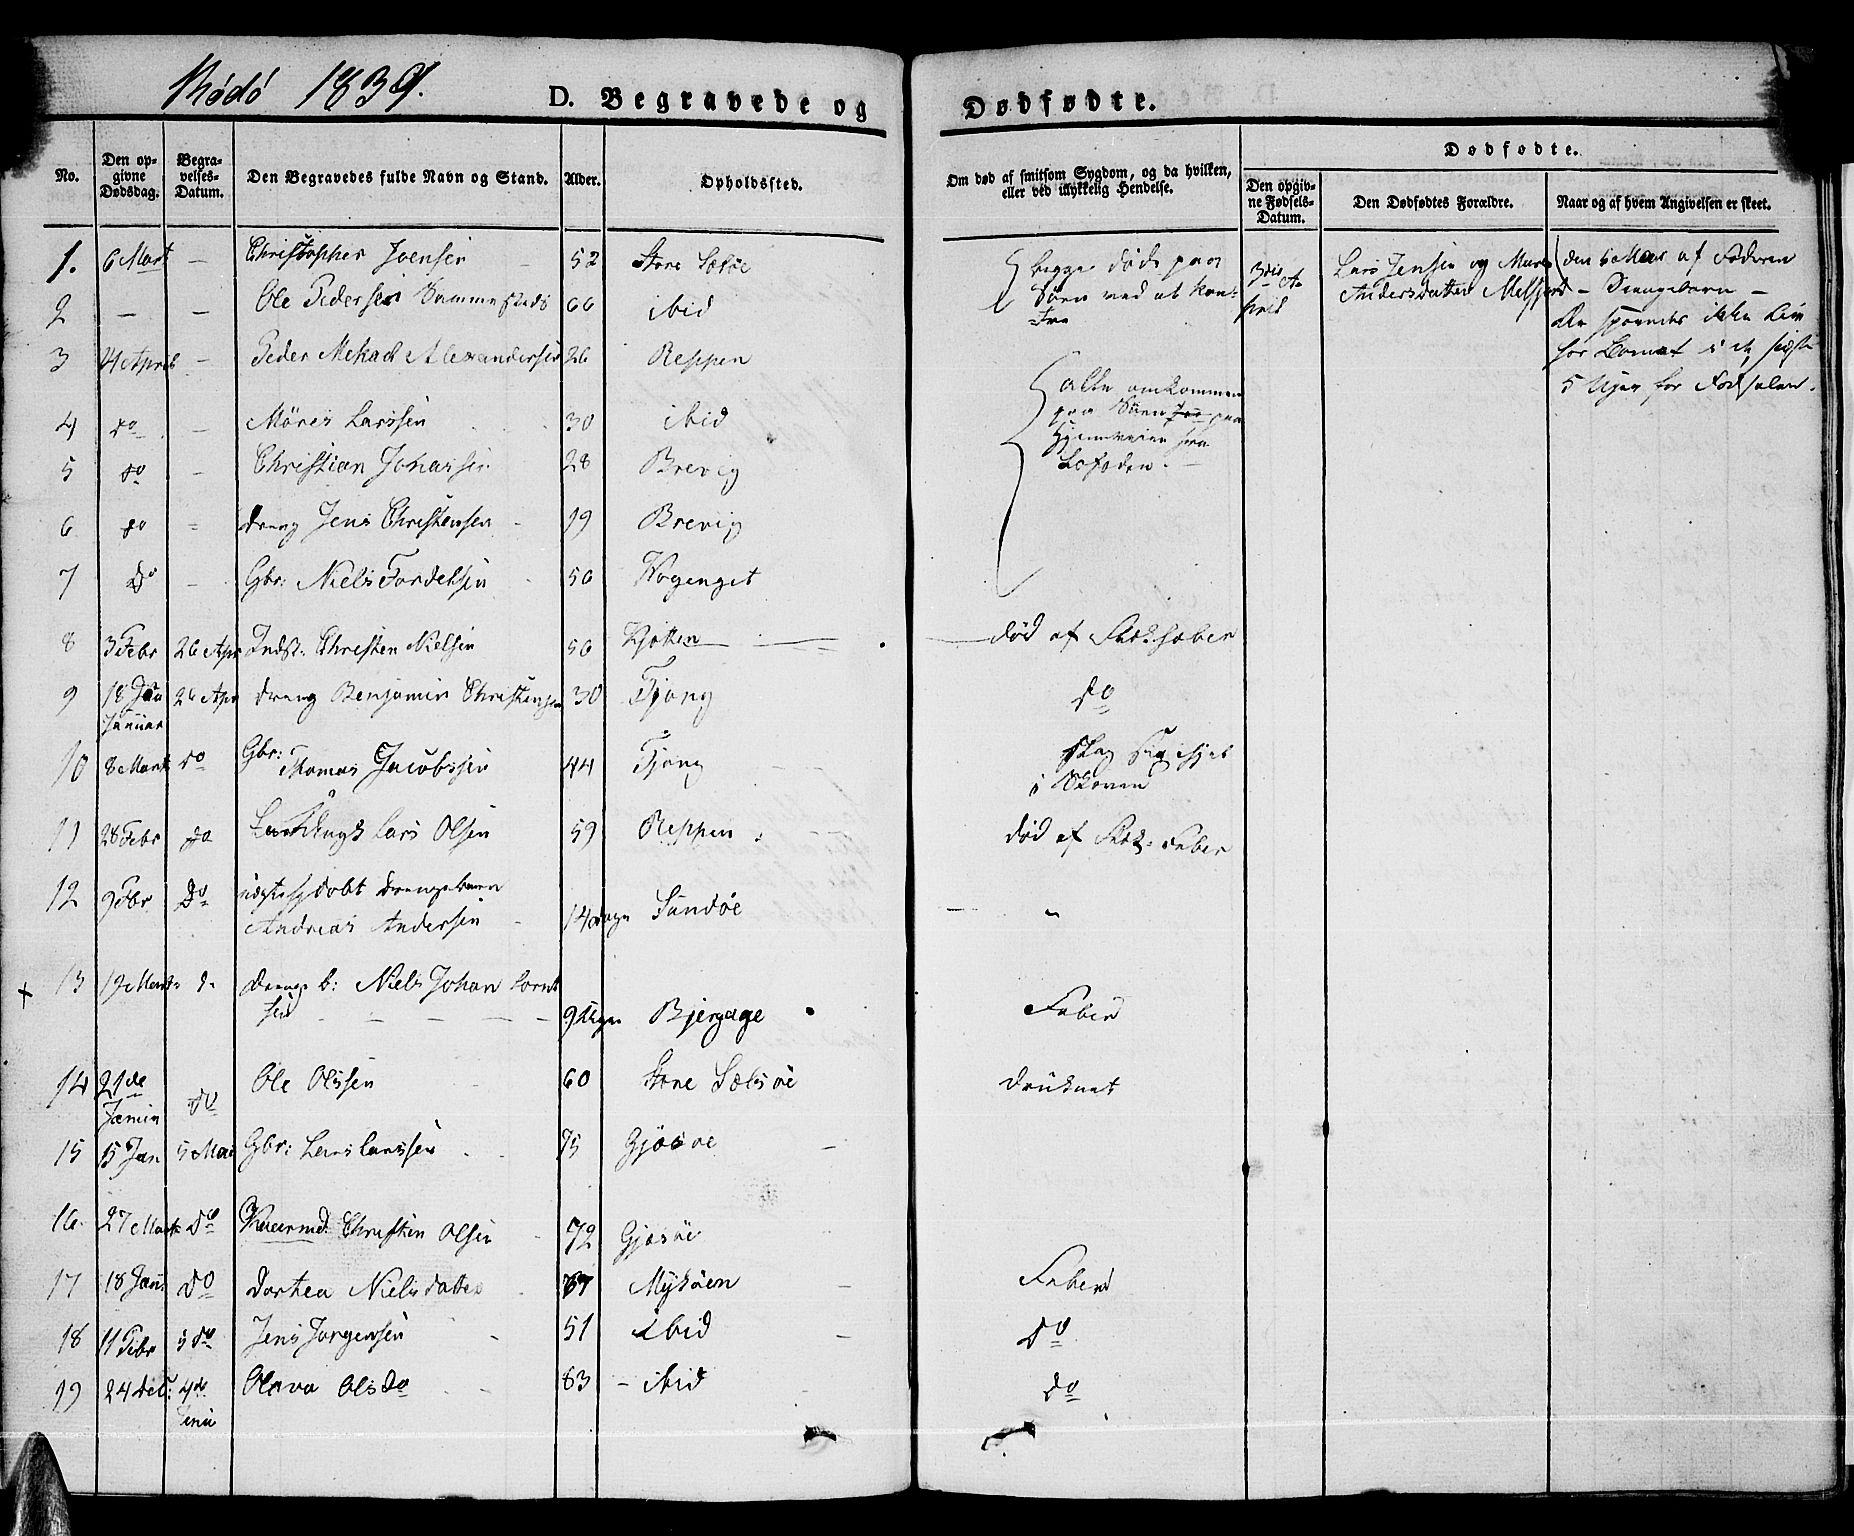 Rødø 1839.
D. Begravede og Dødfødte.
No. Den opgivne Dødsdag. Begravelses-Datum. Den Begravedes fulde Navn og Stand. Alder. Opholdssted. Om død af smitsom Sygdom, og da hvilken, eller ved ulykkelig Hendelse. Dødfødte.
Den opgivne Fødsels-Datum. Den Dødfødtes Forældre. Naar og af hvem Angivelsen er skeet.
1. 6 Mart — Christopher Joensen 52 Store Selsøe begge døde paa
Søen ved at
April Lars Jensen og Maren
Andersdatter Melfjord den 6 Mai af Faderen
— Drengebarn —
ikke Liv
5 Uger før Fødselen.
2 — — Ole Pedersen 60 ibid
3 24 April — Peder Mekael Alexandersen 26 Reppen alle omkommen
paa Søen paa
Hjemveien fra
Lofoden. —
4 do — Møres Larssen 30 ibid
5 do — Christian Johansen 28 Brevig
6 do = dreng Jens Christensen 19 Brevig
7 do — Gbr: Niels Fordelsen 50 Vogenget
8 3 Febr 26 Apr Indst: Christen Nielsen 50 Kjotten død af
9 18 Jan
Januar 26 Apr dreng Benjamin Christensen 30 Tjong do
10 8 Mart do Gbr:
Thomas Jacobssen 44 Tjong
i Skoven
11 28 Febr do Lars Olsen 59 Reppen død af
12 9 Febr Do døbt Drengebarn
Andreas Andersen 14 dage Sundøe — "
13 19 Mart d- drenge b: Niels Johan
sen — — — — 9 Uger Bjergage Feber
14 21de do Ole Olssen 60 Store Selsøe druknet
15 15 Jan 5 Mai Gbr: Lars Larssen 75 Gjøsøe
16. 27 Mart do Christen Olsen 72 Gjesøe
17 18 Jan: do Dortea Nielsdatter 67 Myksøen Feber
18 11 Febr 5 do Jens Jørgensen 51 ibid do
19 24 Dec: 4de Olava Olsdo 83 — ibid do